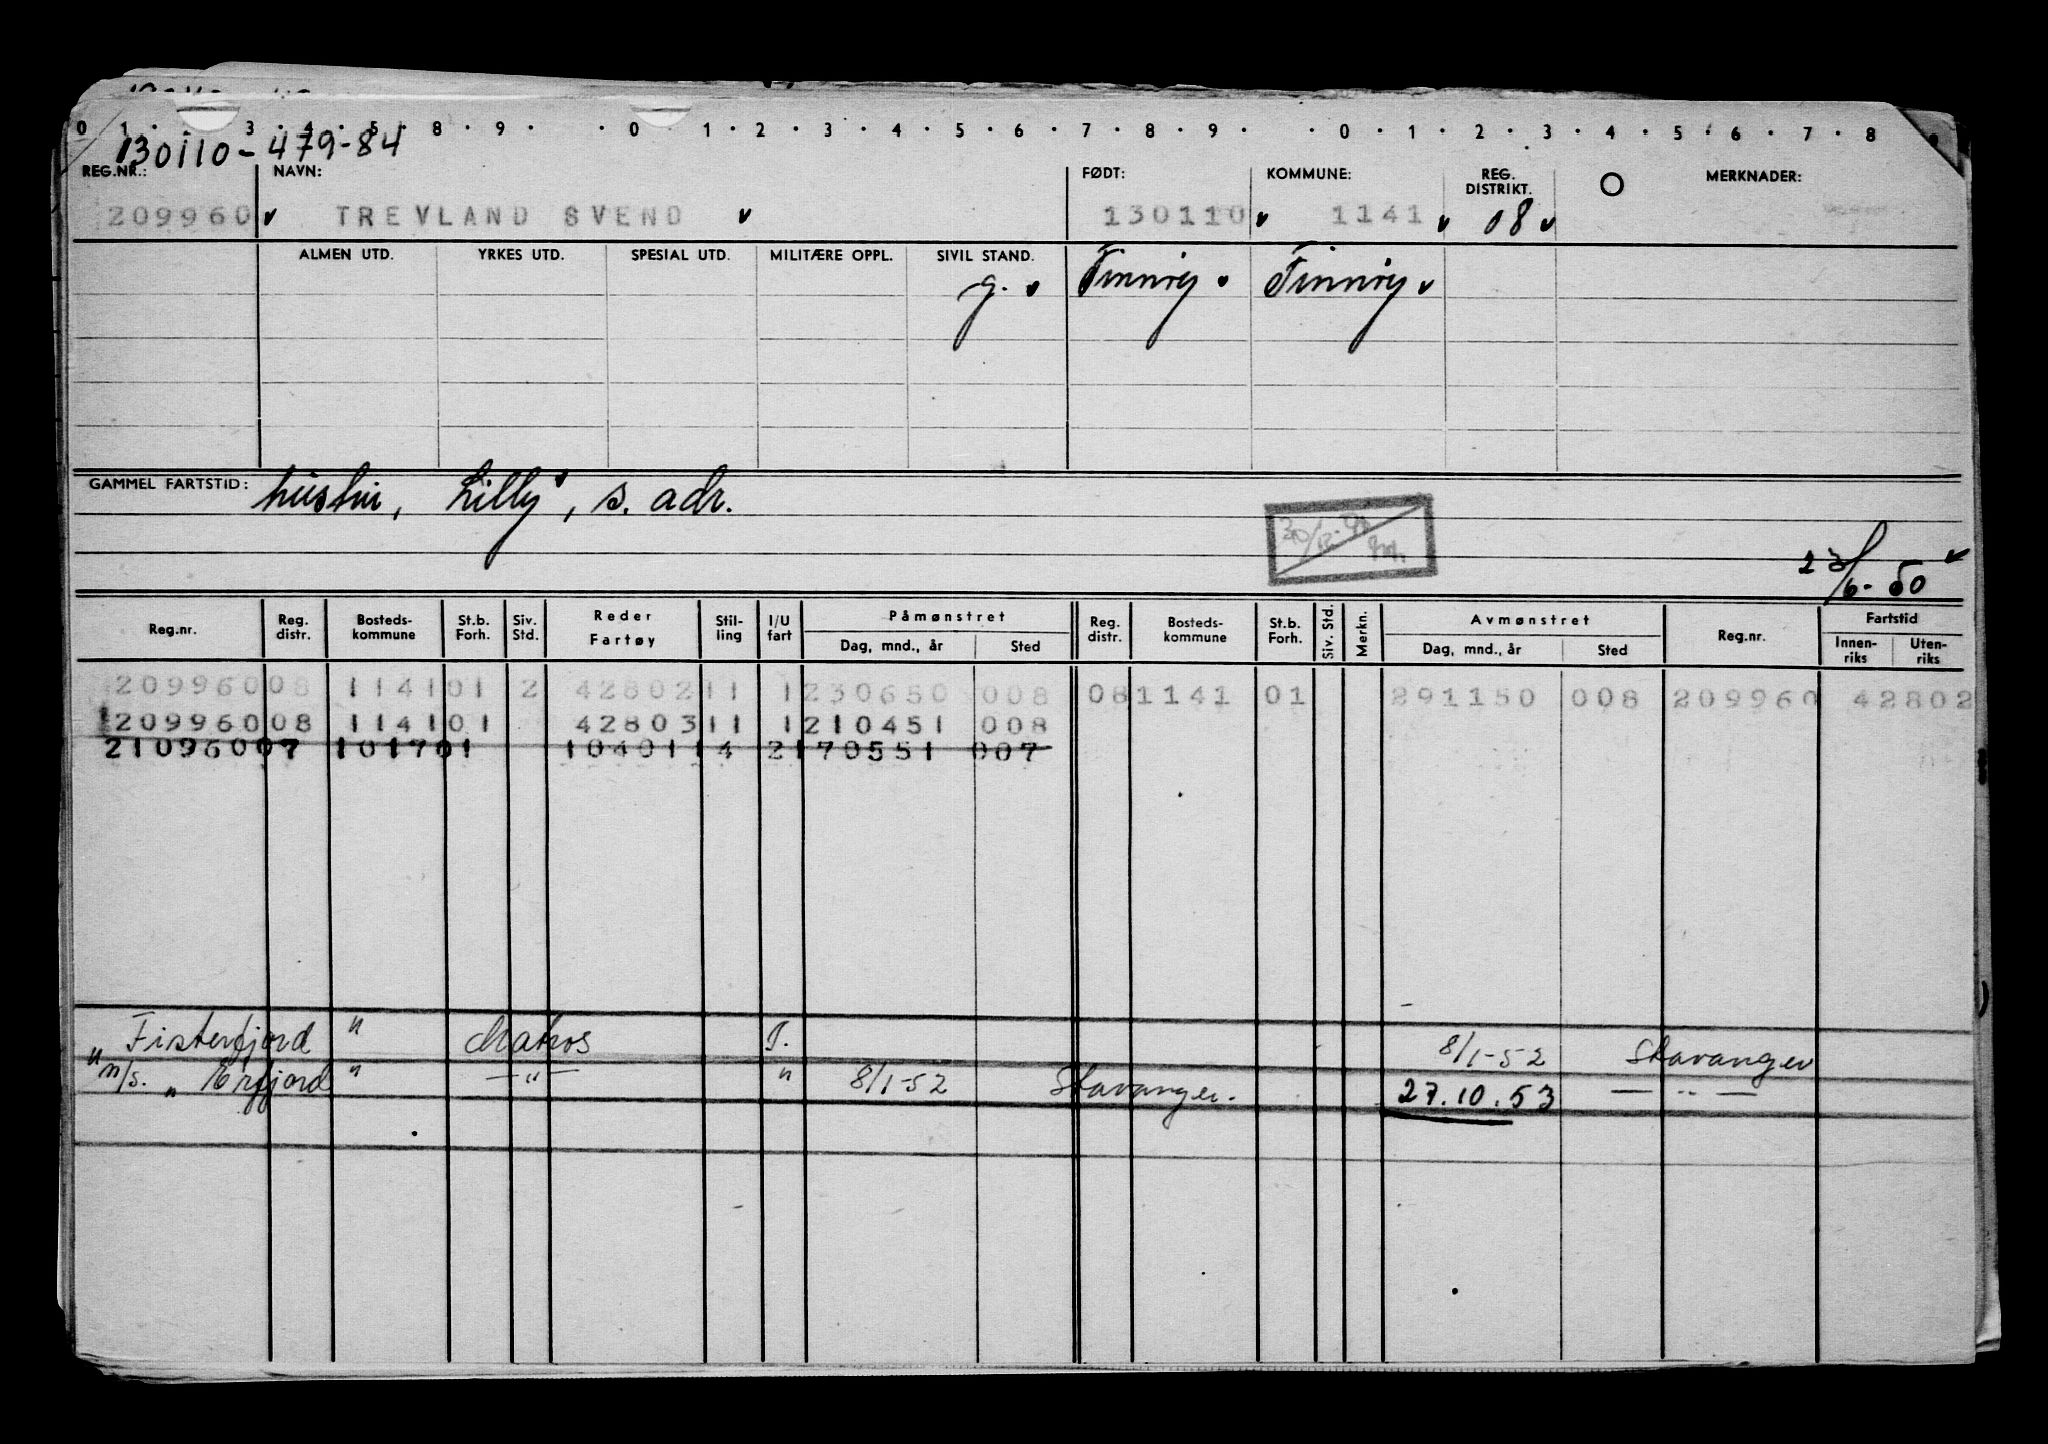 0 1 · 3 · 4 · 5 · 8 · 9 · · 0 · 1 · 2 · 3 · 4 · 5 · 6 · 7 · 8 · 9 · · 0 · 1 · 2 · 3 · 4 · 5 · 6 · 7 · 8
130110-479-84
REG.NR.: NAVN: FØDT: KOMMUNE: REG. DISTRIKT. MERKNADER:
209960 TREVLAND SVEND 130110 1141 08
ALMEN UTD. YRKES UTD. SPESIAL UTD. MILITÆRE OPPL. SIVIL STAND.
g. Finnøy Finnøy
GAMMEL FARTSTID: hustru, Lilly, s. adr.
23/6-50
Reg.nr. Reg. distr. Bosteds-kommune St.b. Forh. Siv. Std. Reder Fartøy Stil-ling I/U fart Påmønstret Dag, mnd., år Sted Reg. distr. Bosteds-kommune St.b. Forh. Siv. Std. Merkn. Avmønstret Dag, mnd., år Sted Reg.nr. Fartstid Innen-riks Uten-riks
209960 08 1141 01 2 42802 11 1 230650 008 08 1141 01 291150 008 209960 42802
209960 08 1141 01 42803 11 1 210451 008
210960 07 1017 01 10401 14 2 170551 007
Fisterfjord " Matros I. 8/1-52 Stavanger
" m/s. „ Erfjord " — " — " 8/1-52 Stavanger. 27.10.53 — " —